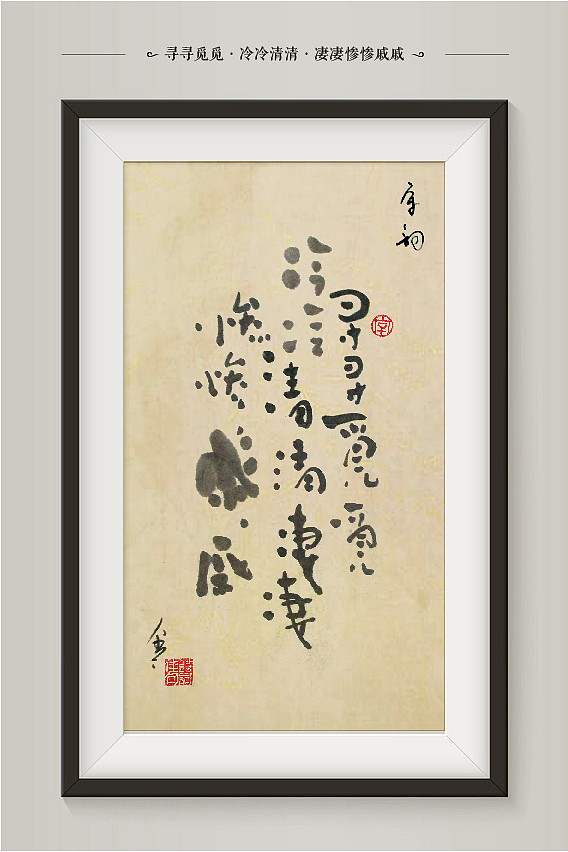 寻寻觅觅 · 冷冷清清 · 凄凄惨惨戚戚
寻寻觅觅
冷冷清清凄凄
惨惨戚戚